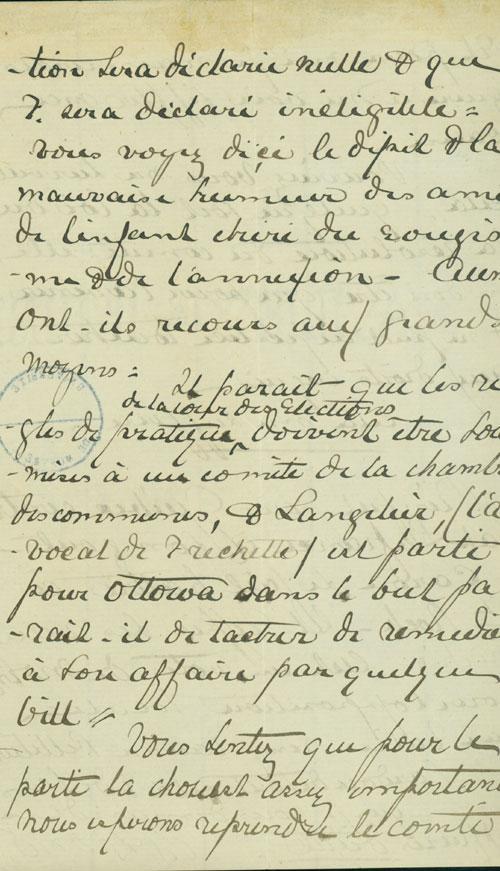 -tion sera déclarée nulle & que
F. sera déclaré inéligible =
vous voyez d'ici le dépit & la
mauvaise humeur des ami
de l'enfant chéri du rougis
-me & de l'annexion -
Ont-ils recours aux grands
moyens = Il parait que les re
de la cour des Elections
-gles de pratique ^ doivent être sou
-mises à un comité de la chamb
des communes, & Langelier, (l'a
-vocat de Frechette) est parti
pour Ottowa dans le but pa
-rait-il de tacher de remedie
à son affaire par quelque
bill =
Vous sentez que pour le
parti la chose est assez important
nous esperons reprendre le comté